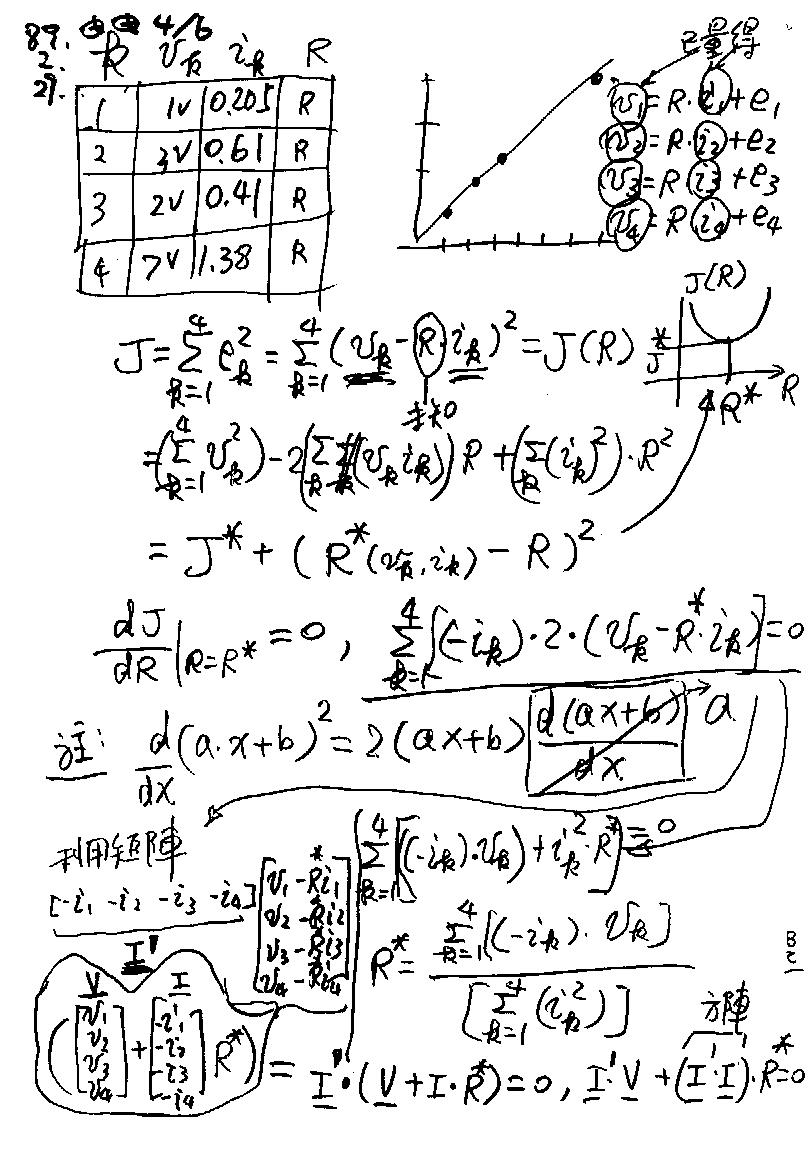 89. 4/6
2.
29.
k v_k i_k R
1 1v 0.205 R
2 3v 0.61 R
3 2v 0.41 R
4 7v 1.38 R
已量得
v_1 = R·i_1 + e_1
v_2 = R·i_2 + e_2
v_3 = R i_3 + e_3
v_4 = R i_4 + e_4
J(R)
J*
R* R
J = \sum_{k=1}^{4} e_k^2 = \sum_{k=1}^{4} (v_k - R·i_k)^2 = J(R)
未知
= (\sum_{k=1}^{4} v_k^2) - 2(\sum_k (v_k i_k)) R + (\sum_k (i_k)^2)·R^2
= J* + (R*(v_k, i_k) - R)^2
dJ/dR |_{R=R*} = 0, \sum_{k=1}^{4} [(-i_k)·2·(v_k - R*·i_k)] = 0
註: d/dx (a·x+b)^2 = 2(ax+b) [d(ax+b)/dx] → a
利用矩陣
\sum_{k=1}^{4} [(-i_k)·v_k) + i_k^2·R*] = 0
[-i_1 -i_2 -i_3 -i_4] [v_1 - R*i_1
v_2 - R*i_2
v_3 - R*i_3
v_4 - R*i_4]
I'
R* = \sum_{k=1}^{4} [(-i_k)·v_k] / [\sum_{k=1}^{4} (i_k^2)]
V I
([v_1 v_2 v_3 v_4] + [-i_1 -i_2 -i_3 -i_4] R*)
方陣
= I'·(V + I·R*) = 0, I'·V + (I'·I)·R* = 0